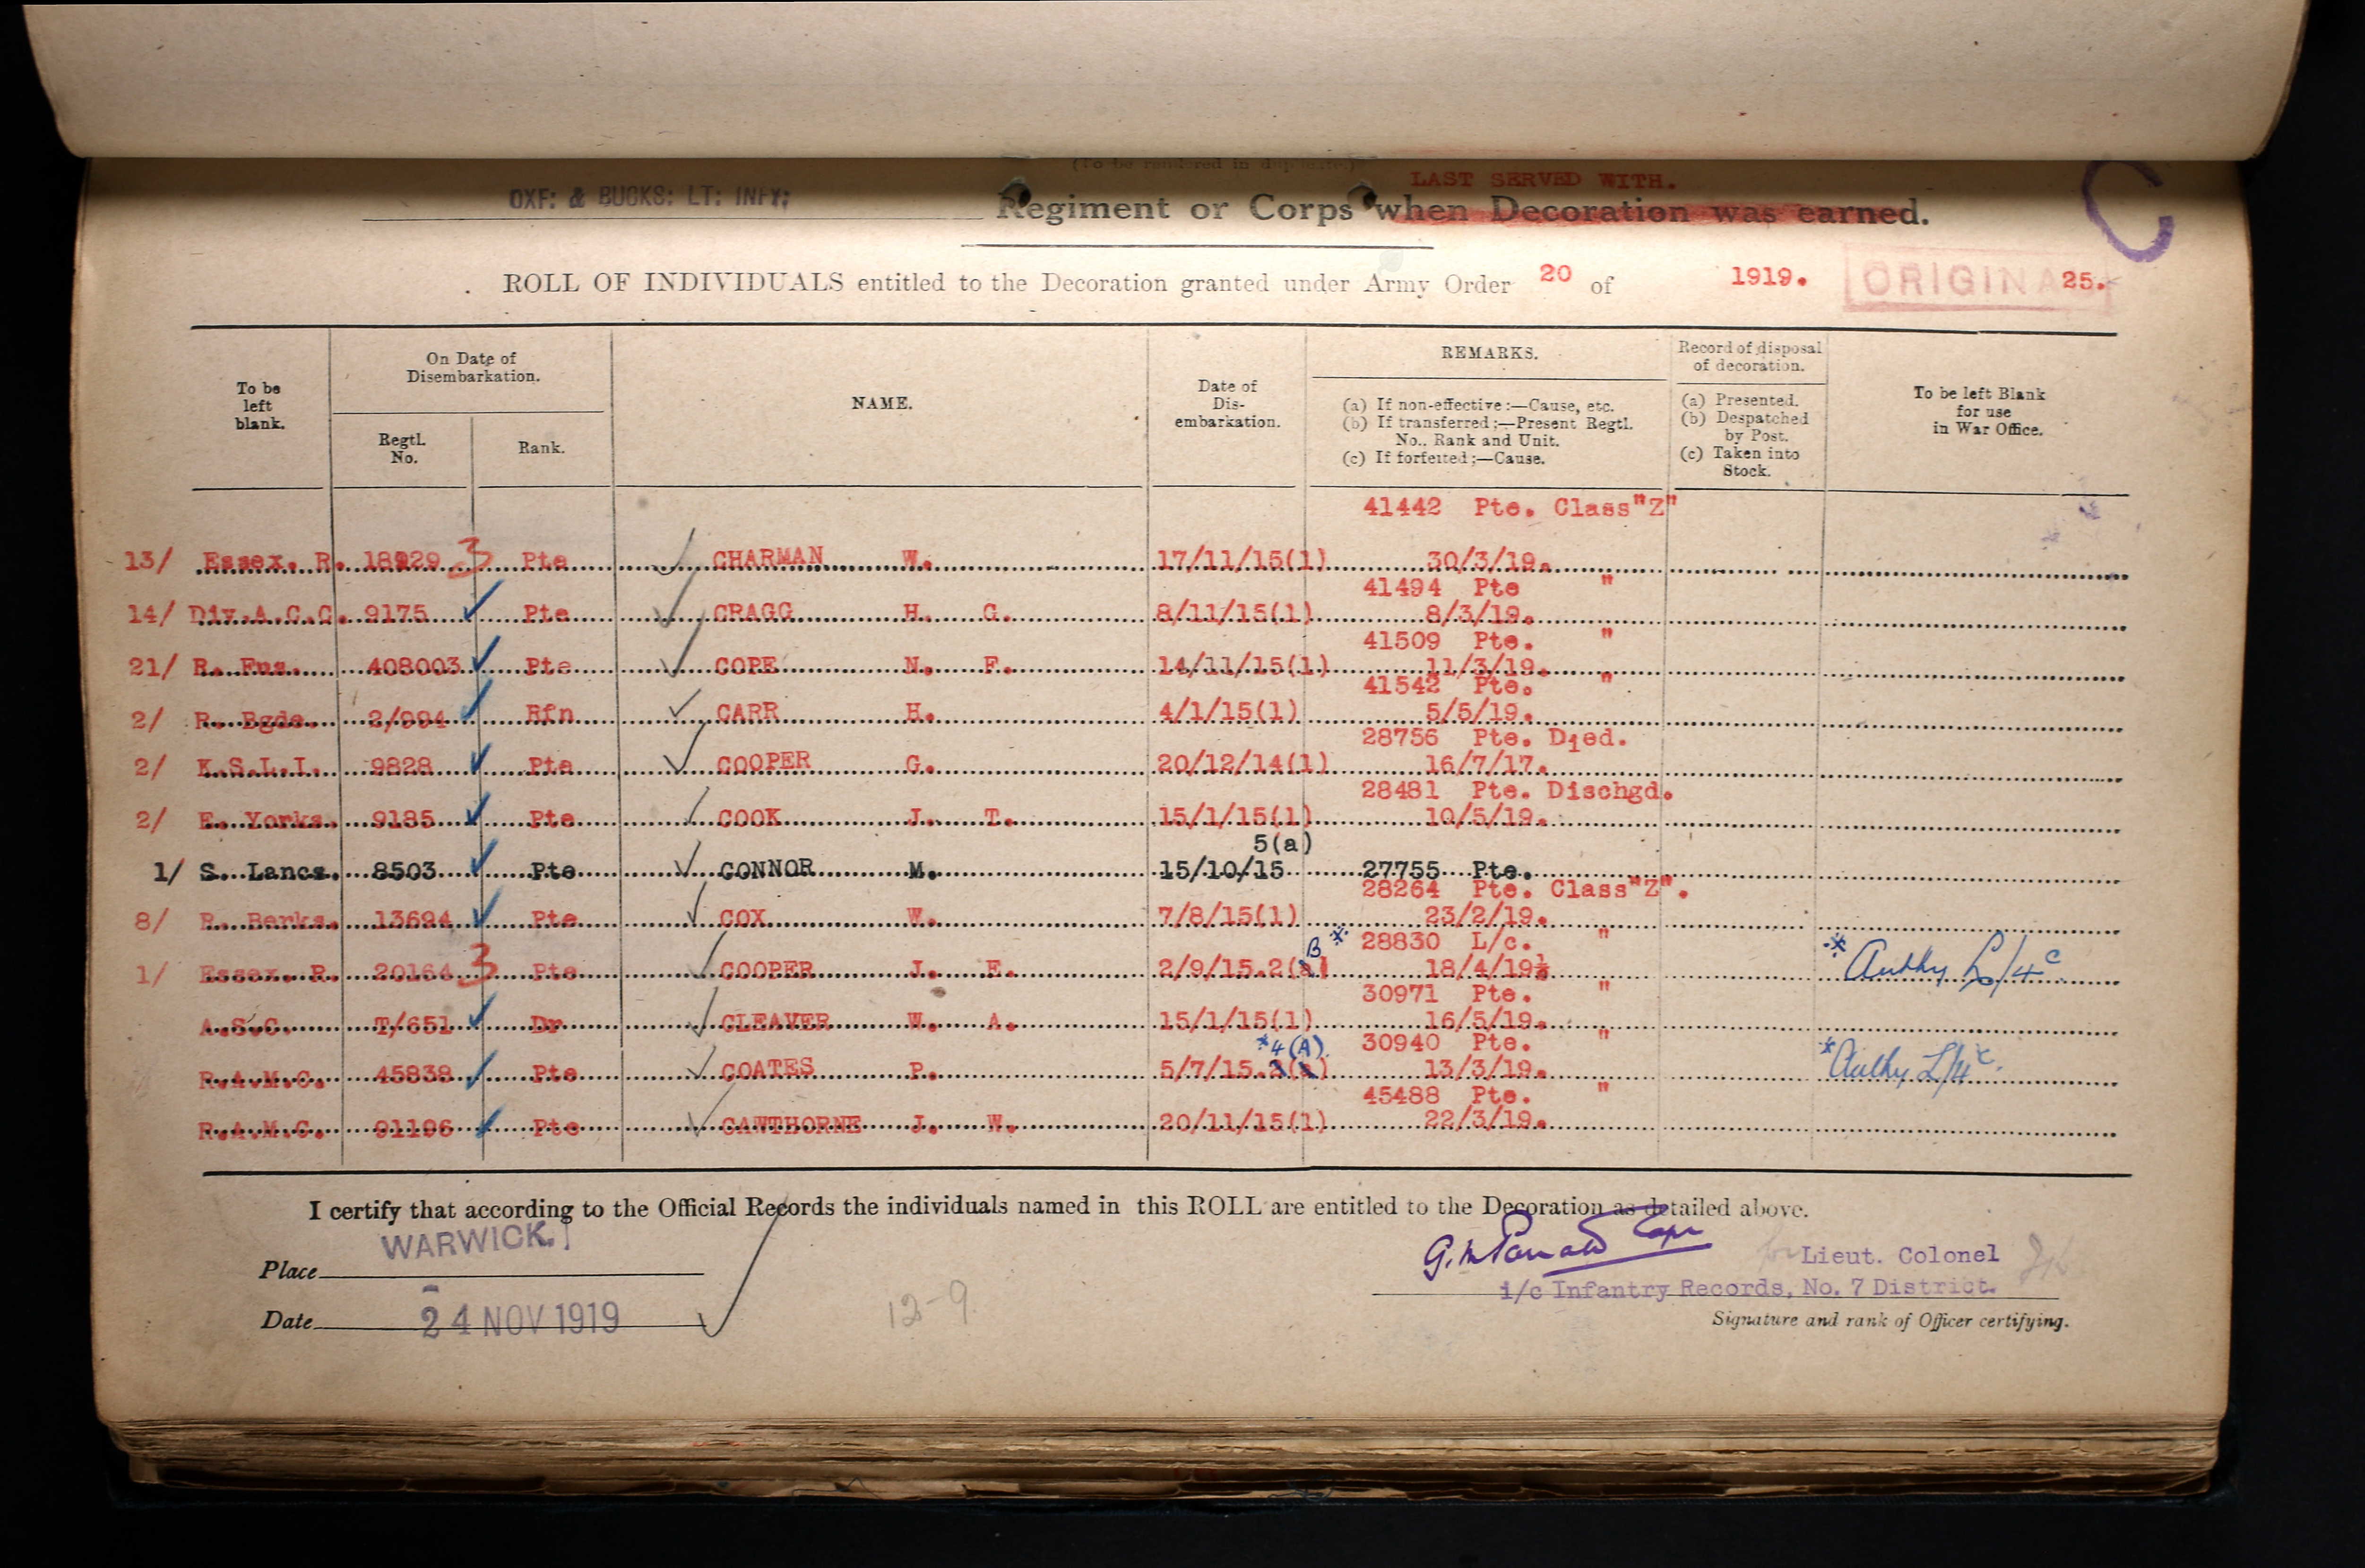 (To be rendered in duplicate.)
LAST SERVED WITH.
OXF: & BUCKS: LT: INFY: Regiment or Corps when Decoration was earned.
C
ROLL OF INDIVIDUALS entitled to the Decoration granted under Army Order 20 of 1919. ORIGINAL 25.
To be left blank.
On Date of Disembarkation.
Regtl. No.
Rank.
NAME.
Date of Dis-embarkation.
REMARKS.
(a) If non-effective:—Cause, etc.
(b) If transferred;—Present Regtl. No., Rank and Unit.
(c) If forfeited;—Cause.
Record of disposal of decoration.
(a) Presented.
(b) Despatched by Post.
(c) Taken into Stock.
To be left Blank for use in War Office.
41442 Pte. Class"Z"
13/ Essex. R. 18929 3 Pte CHARMAN W. 17/11/15(1) 30/3/19.
41494 Pte "
14/ Div.A.C.C. 9175 Pte CRAGG H. G. 8/11/15(1) 8/3/19.
41509 Pte. "
21/ R. Fus. 408003 Pte COPE N. F. 14/11/15(1) 11/3/19.
41542 Pte. "
2/ R. Bgde. 2/994 Rfn CARR H. 4/1/15(1) 5/5/19.
28756 Pte. Died.
2/ K.S.L.I. 9828 Pte COOPER G. 20/12/14(1) 16/7/17.
28481 Pte. Dischgd.
2/ E. Yorks. 9185 Pte COOK J. T. 15/1/15(1) 10/5/19.
5(a)
1/ S. Lancs. 8503 Pte CONNOR M. 15/10/15 27755 Pte.
28264 Pte. Class"Z".
8/ R. Berks. 13694 Pte COX W. 7/8/15(1) 23/2/19.
B * 28830 L/c. "
1/ Essex. R. 20164 3 Pte COOPER J. E. 2/9/15.2(a) 18/4/19. * Authy L/4c
30971 Pte. "
A.S.C. T/651 Dr CLEAVER W. A. 15/1/15(1) 16/5/19.
*4(A) 30940 Pte. "
R.A.M.C. 45838 Pte COATES P. 5/7/15.2(a) 13/3/19. * Authy L/4c.
45488 Pte. "
R.A.M.C. 91196 Pte CAWTHORNE J. W. 20/11/15(1) 22/3/19.
I certify that according to the Official Records the individuals named in this ROLL are entitled to the Decoration as detailed above.
WARWICK.
Place
for Lieut. Colonel
i/c Infantry Records, No. 7 District.
Date 24 NOV 1919
12-9
Signature and rank of Officer certifying.